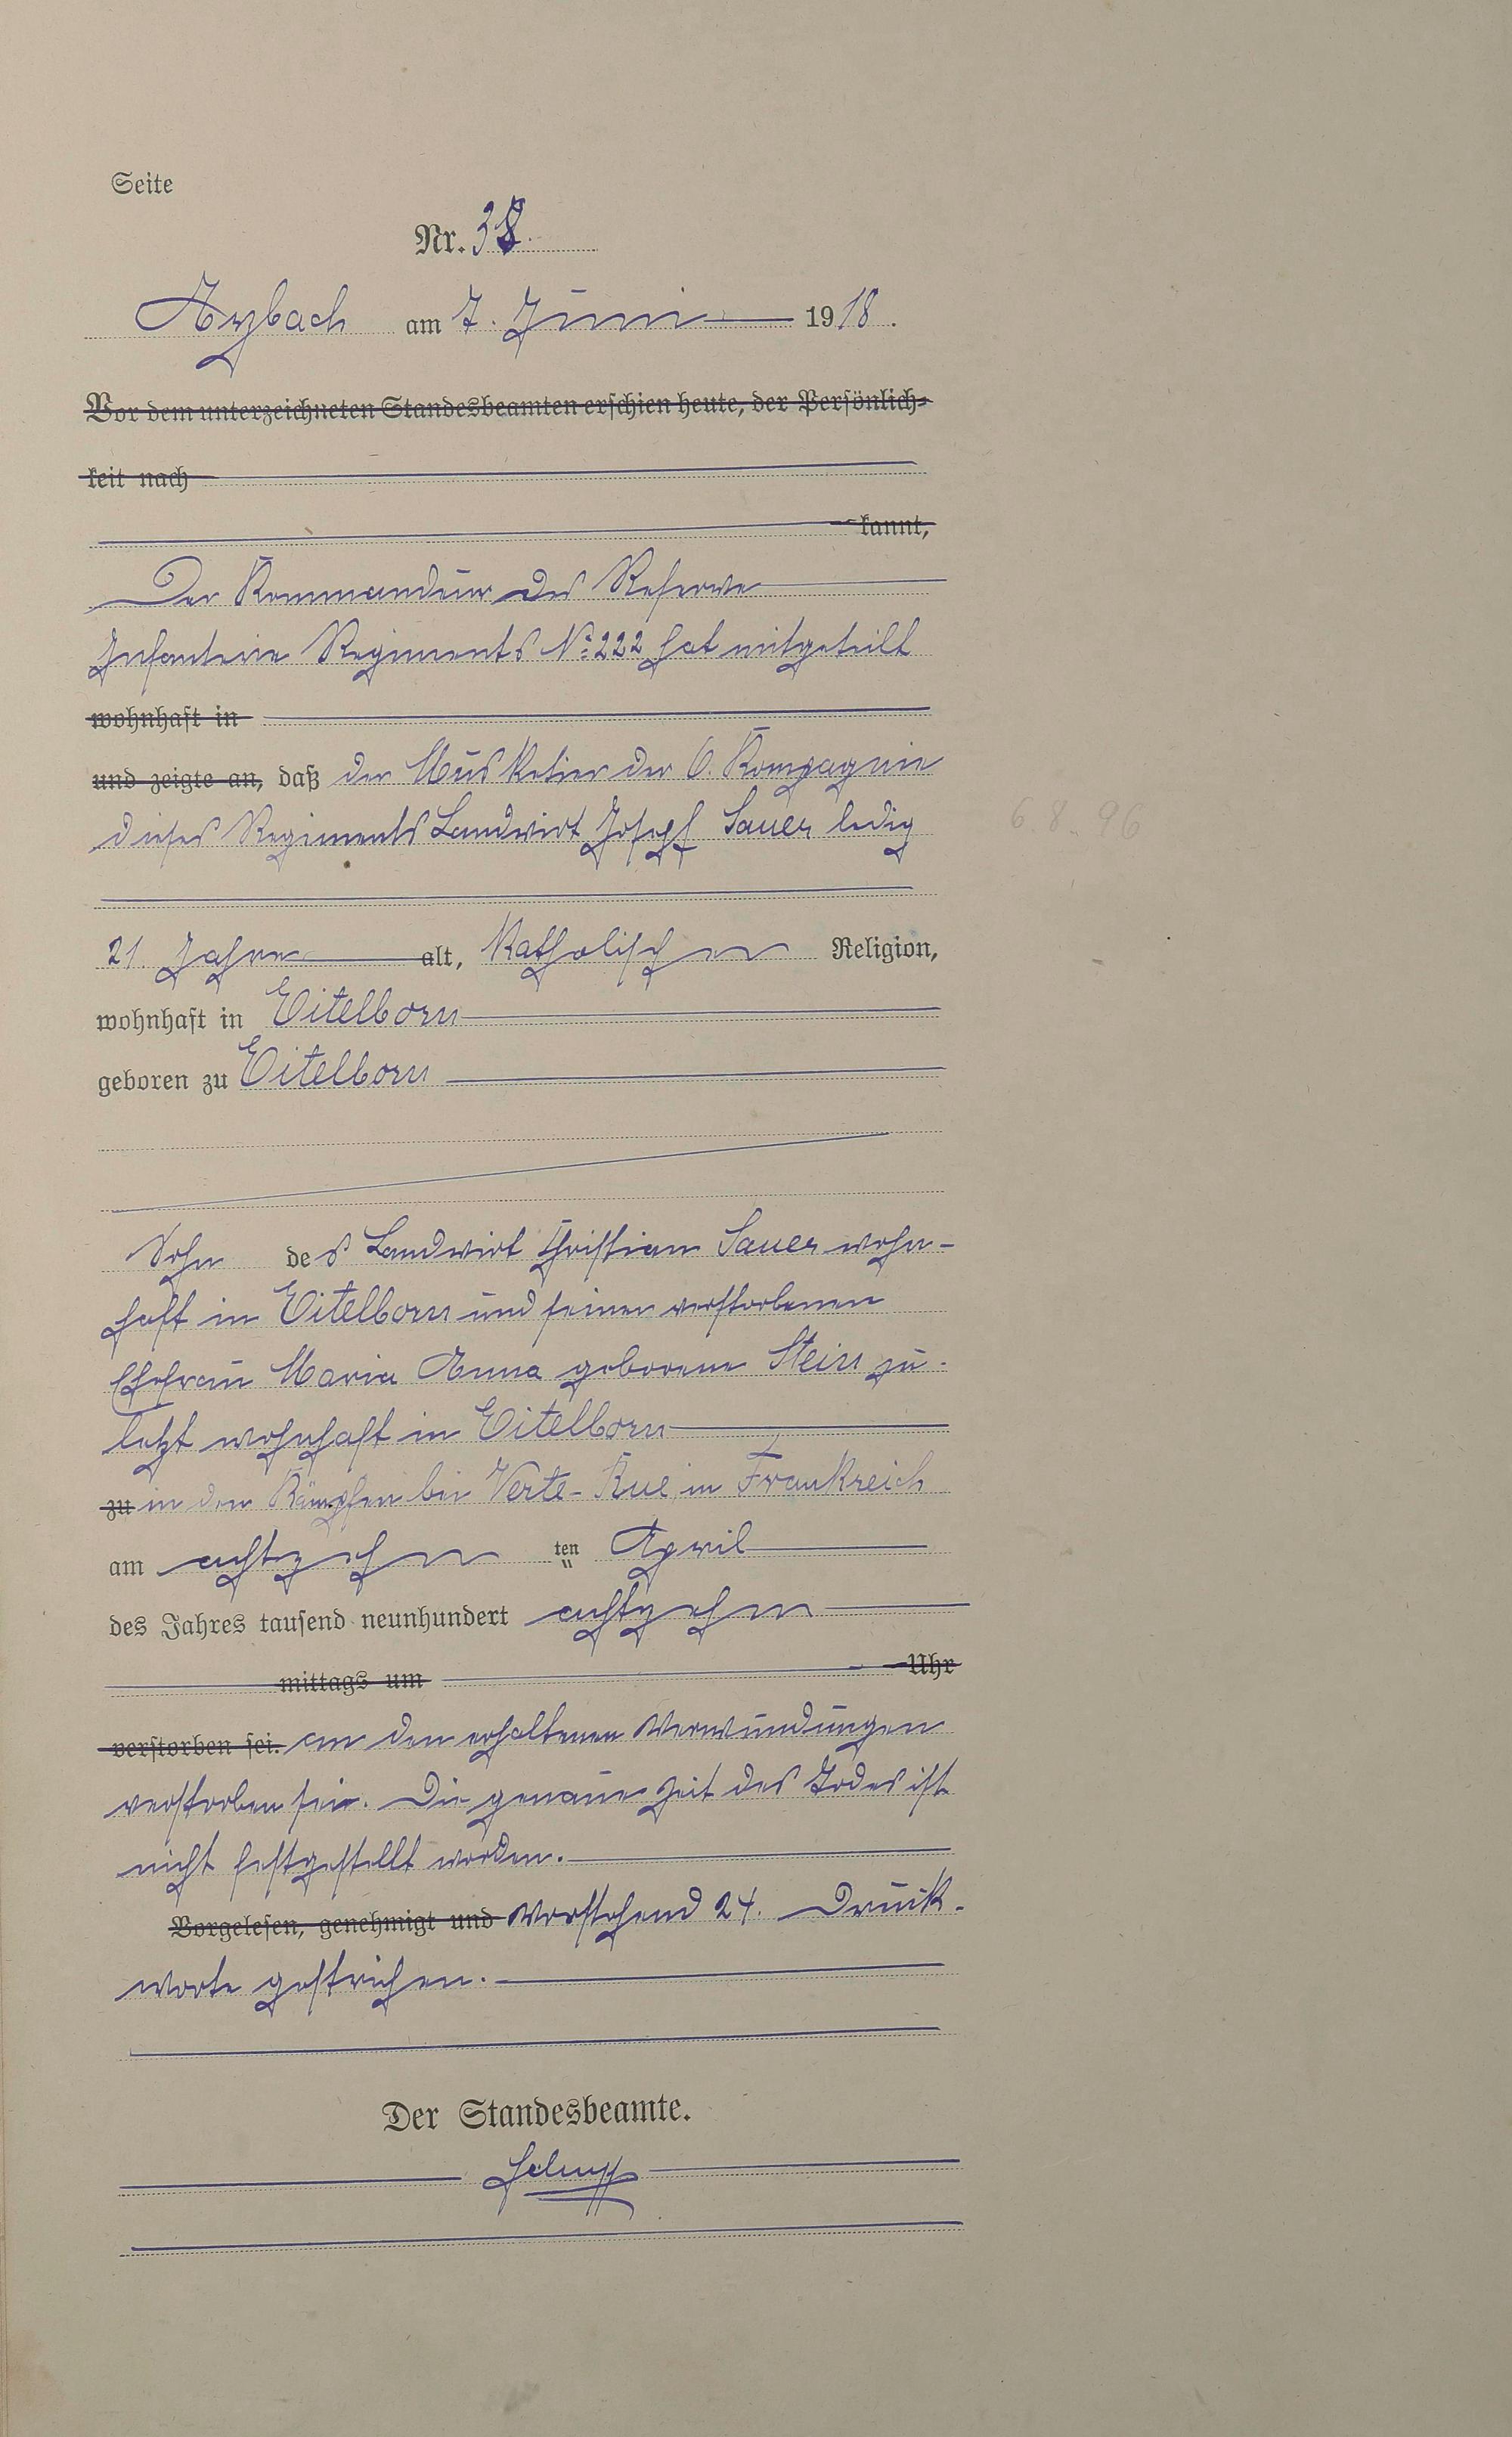 Seite
Nr. 38.
Arzbach am 7. Juni 1918.
Vor dem unterzeichneten Standesbeamten erschien heute, der Persönlich-
keit nach
kannt,
Der Kommandeur des Reserve
Infanterie Regiments No: 222 hat mitgeteilt
wohnhaft in
und zeigte an, daß der Musketier der 6. Kompagnie
dieses Regiments Landwirt Josef Sauer ledig
6.8.96
21 Jahre alt, katholischer Religion,
wohnhaft in Eitelborn
geboren zu Eitelborn
Sohn des Landwirt Christian Sauer wohn-
haft in Eitelborn und seiner verstorbenen
Ehefrau Maria Anna geborene Stein zu-
letzt wohnhaft in Eitelborn
zu in den Kämpfen bei Verte-Rue in Frankreich
am achtzehn ten April
des Jahres tausend neunhundert achtzehn
mittags um Uhr
verstorben sei. an den erhaltenen Verwundungen
verstorben sei. Die genaue Zeit des Todes ist
nicht festgestellt worden.
Vorgelesen, genehmigt und Vorstehend 24. Druck-
worte gestrichen.
Der Standesbeamte.